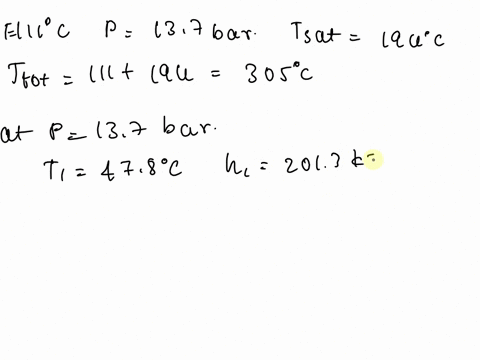 F111°C P = 13.7 bar. Tsat = 194°C
Ttot = 111 + 194 = 305°C
at P = 13.7 bar.
T1 = 47.8°C h1 = 201.3 k